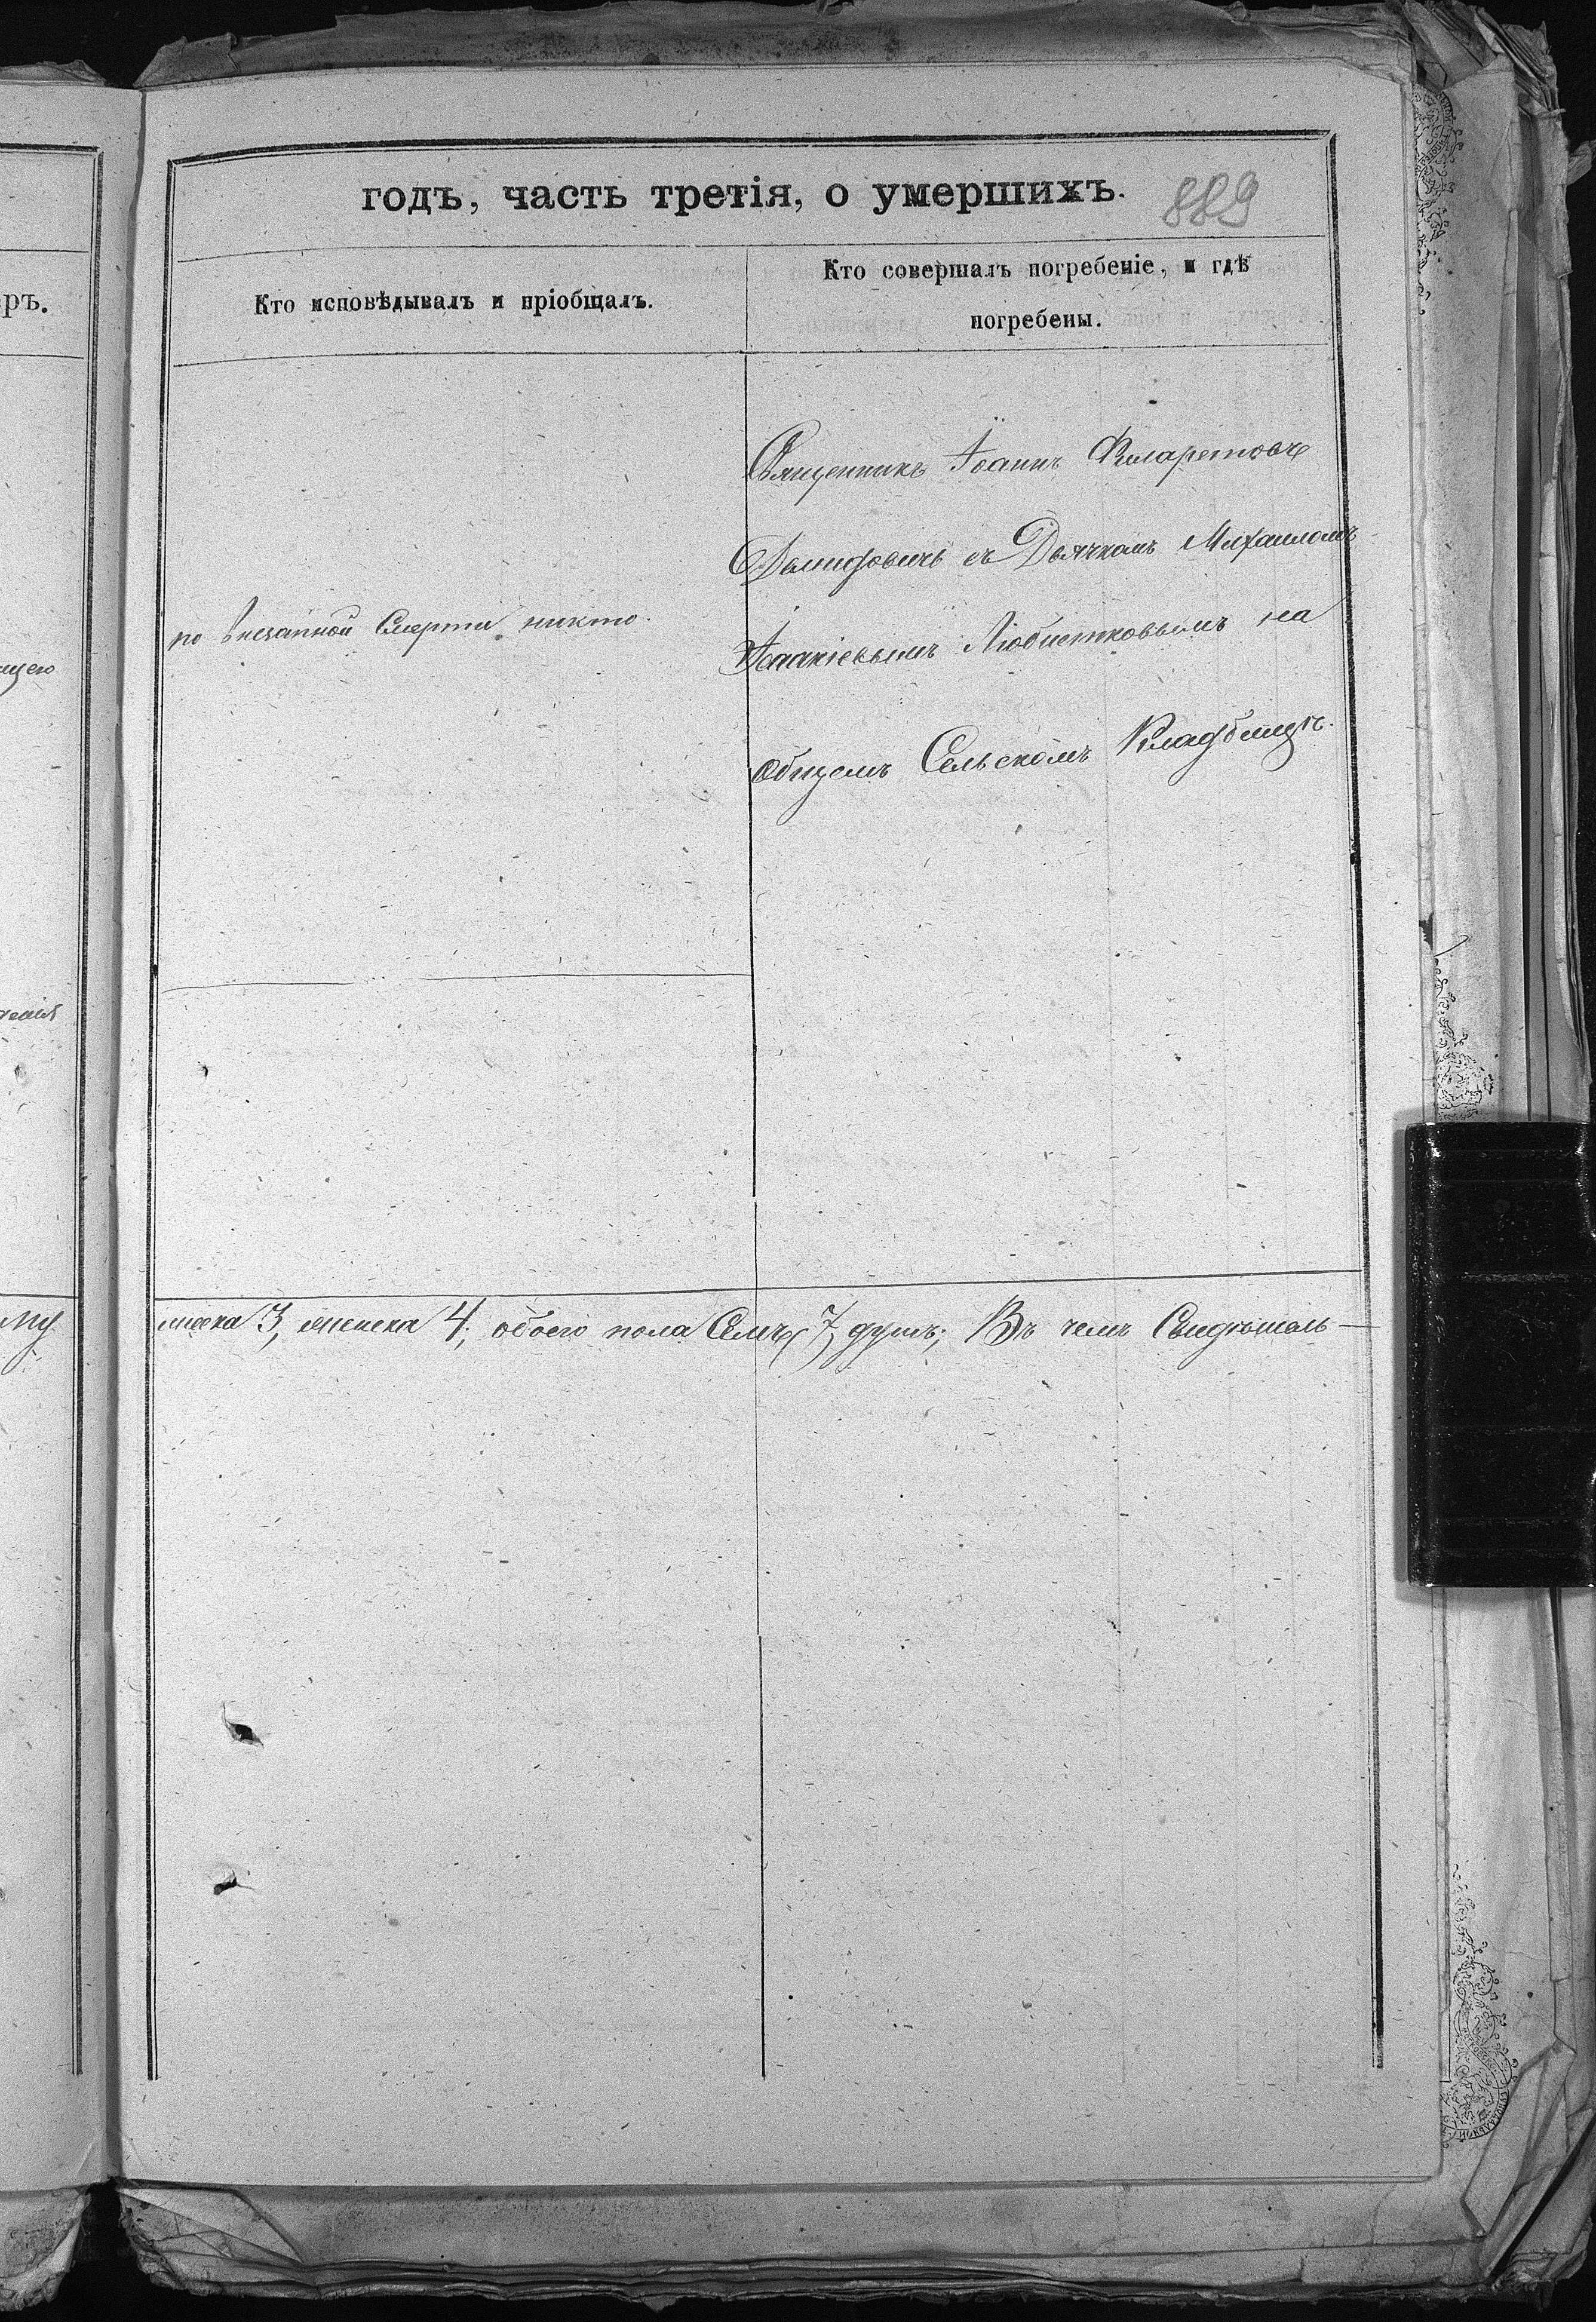 годъ, часть третія, о умершихъ.
889
Кто исповѣдывалъ и пріобщалъ.
Кто совершалъ погребеніе, и гдѣ
погребены.
Священникъ Іоаннъ Филаретовъ
Демидовичъ съ Дьячкомъ Михаиломъ
по внезапной Смерти никто.
Іоанкіевымъ Любистковымъ на
Общемъ Сельскомъ Кладбищѣ.
3, женска 4; обоего пола Семь 7, душъ; Въ чемъ Свидѣтель-